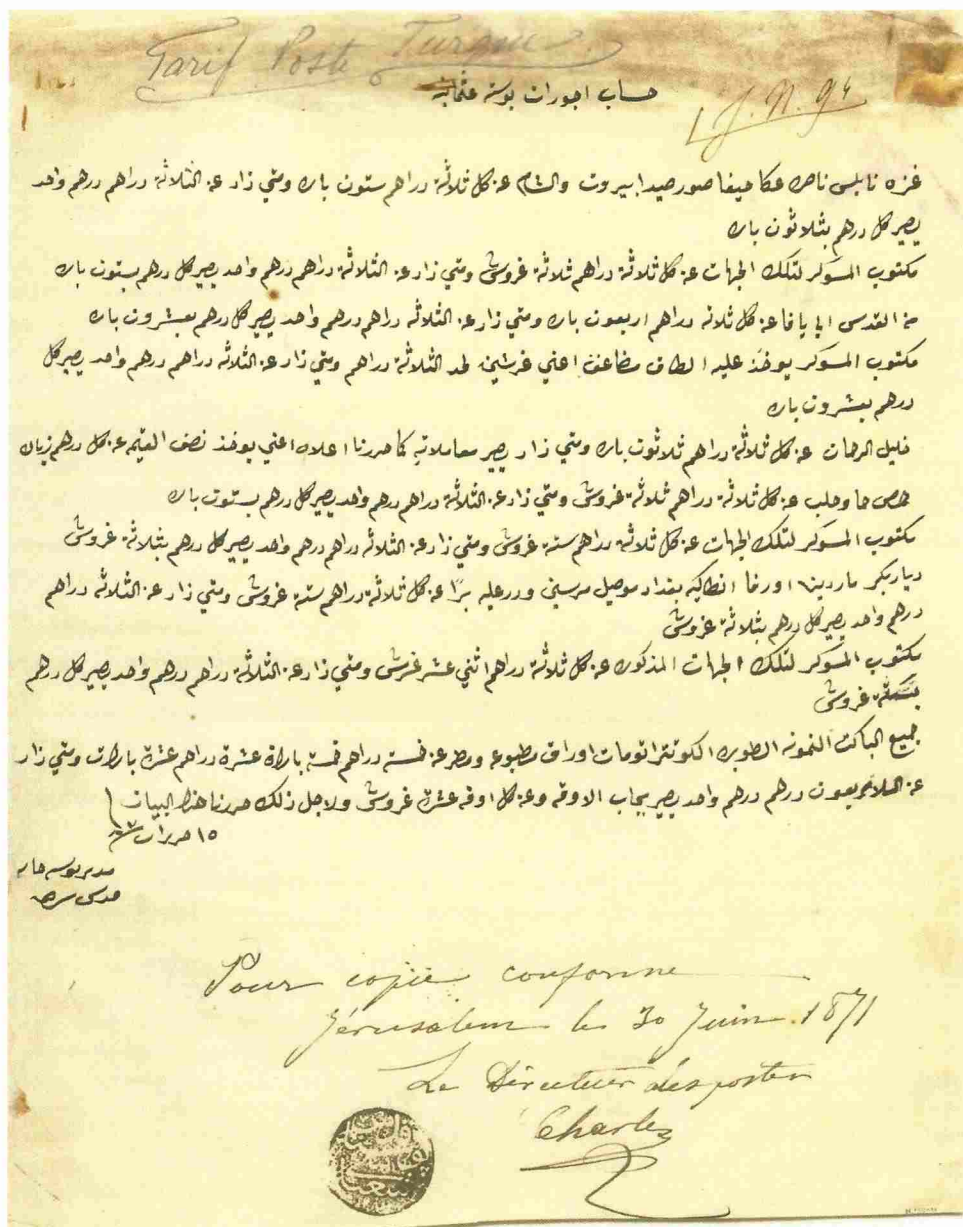 Tarif Poste Turque
حساب اجورات بوسته عثمانيه
J. N. 94
غزه نابلس ناصره عكا حيفا صور صيدا بيروت والشام عن كل ثلاثة دراهم ستون باره ومتي زاد عن الثلاثة دراهم درهم واحد
يصير كل درهم بثلاثون باره
مكتوب المسوكر لتلك الجهات عن كل ثلاثة دراهم ثلاثة غروش ومتي زاد عن الثلاثة دراهم درهم واحد يصير كل درهم بستون باره
من القدس الي يافا عن كل ثلاثه دراهم اربعون باره ومتي زاد عن الثلاثه دراهم درهم واحد يصير كل درهم بعشرون باره
مكتوب المسوكر يوخذ عليه الطاق مضاعف اعني غرشين لحد الثلاثة دراهم ومتي زاد عن الثلاثه دراهم درهم واحد يصير كل
درهم بعشرون باره
خليل الرحمان عن كل ثلاثة دراهم ثلاثون باره ومتي زاد يصير معاملاته كما حررنا اعلاه اعني يوخذ نصف القيم عن كل درهم زياده
حمص حما وحلب عن كل ثلاثة دراهم ثلاثة غروش ومتي زاد عن الثلاثة دراهم درهم واحد يصير كل درهم بستون باره
مكتوب المسوكر لتلك الجهات عن كل ثلاثة دراهم ستة غروش ومتي زاد عن الثلاثه دراهم درهم واحد يصير كل درهم بثلاثة غروش
دياربكر ماردين اورفا انطاكيه بغداد موصل مرسين ودرعليه برًا عن كل ثلاثة دراهم ستة غروش ومتي زاد عن الثلاثه دراهم
درهم واحد يصير كل درهم بثلاثة غروش
مكتوب المسوكر لتلك الجهات المذكوره عن كل ثلاثة دراهم اثني عشر غرش ومتي زاد عن الثلاثة دراهم درهم واحد يصير كل درهم
بستة غروش
جميع الباكت النمونه اوراق مطبوعه خمسة دراهم خمسة باراة عشرة دراهم عشرة بارات ومتي زاد
عن درهم درهم واحد يصير بحساب الاوقه وعن كل اوقه عشرة غروش ولاجل ذلك حررنا هذا البيان
١٥ حزيران
مدير بوسته خانه
قدس شريف
Pour copie conforme
Jérusalem le 30 Juin 1871
Le Directeur des postes
Charles